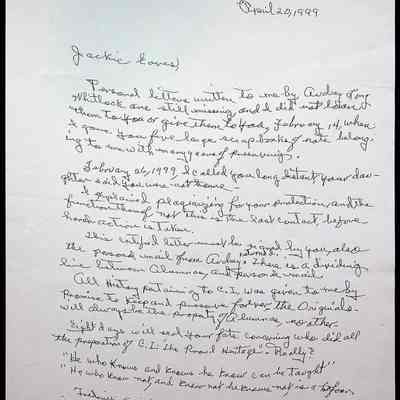 April 20, 1999
Jackie Eaves,
Personal letters written to me by Audrey Long
Whitlock are still missing and I did not
them to you or give them to you, February 14, when
I gave you five large scrapbooks of note belong
ing to me with many years of preserving.
February 26, 1999, I called you long distant your dau-
ghter said you were not home -
I explained plagiarizing for your protection, and the
function thereof not this is the last contact, before
harsh action is taken.
This letter must be signed by you, also
the personal mail from Audrey returned. There is a dividing
line between Alumnae, and personal mail.
All History pertaining to C.I. was given to me by
Promise to keep and preserve forever the Originals
will always be the property of Alumnae, no other.
Eight days will seal your fate, concerning who did all
the preparation of C.I. the Proud Heritage - Really?
"He who knows and knows he know can be taught"
"He who know not, and know not he knows not, is a